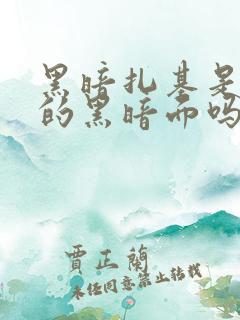 黑暗扎基是
的黑暗而吗
贾正兰
未经同意禁止转载